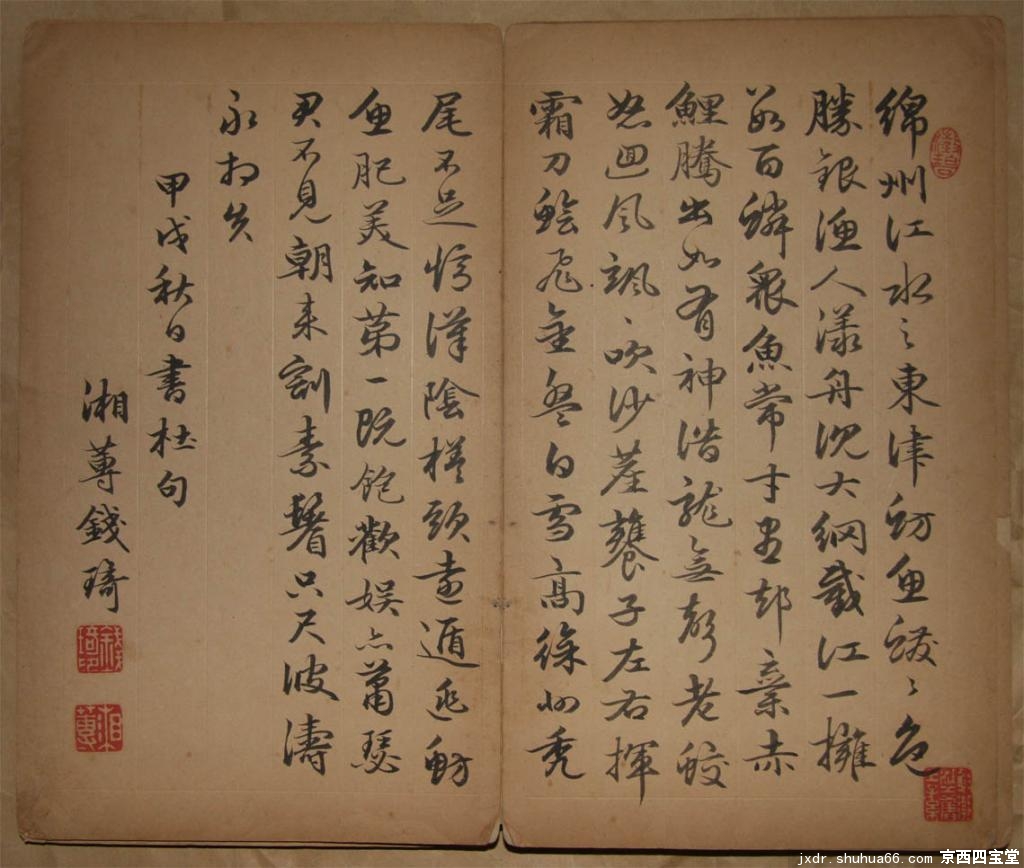 綿州江水之東津魴魚鱍〻色
勝銀漁人漾舟沉大網截江一擁
數百鱗眾魚常才盡却棄赤
鯉騰出如有神潛龍無聲老蛟
怒迴風颯〻吹沙塵饔子左右揮
霜刀鱠飛金盤白雪高徐州禿
尾不足憶漢陰槎頭遠遁逃魴
魚肥美知第一既飽歡娛亦蕭瑟
君不見朝来割素鬐只尺波濤
永相失
甲戌秋日書杜句
湘蓴錢琦
湘蓴
jxdr.shuhua66.com 京西四宝堂